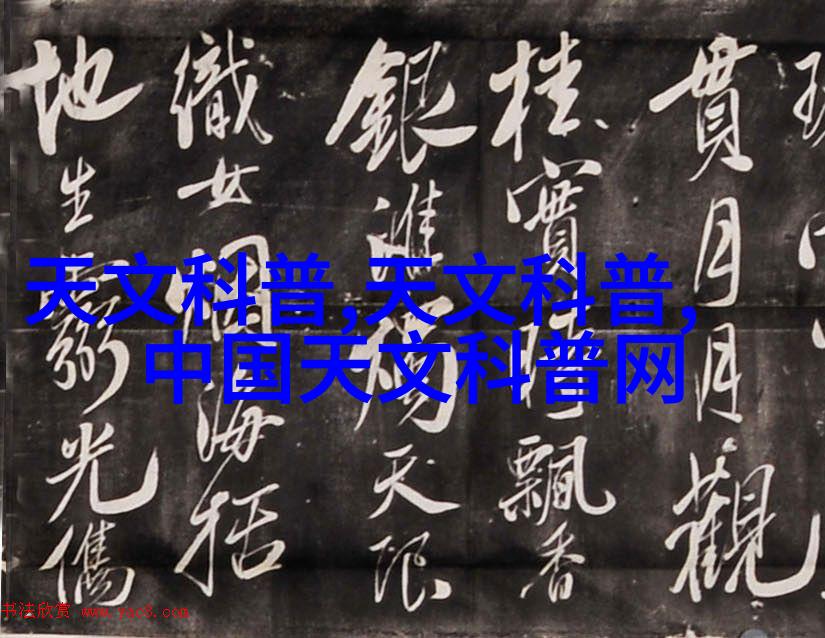 貫月月觀
桂實時飄香
銀淮天限
織女海括
地生光儁
天文科普,天文科普,
中国天文科普网
书法欣赏 www.yac8.com